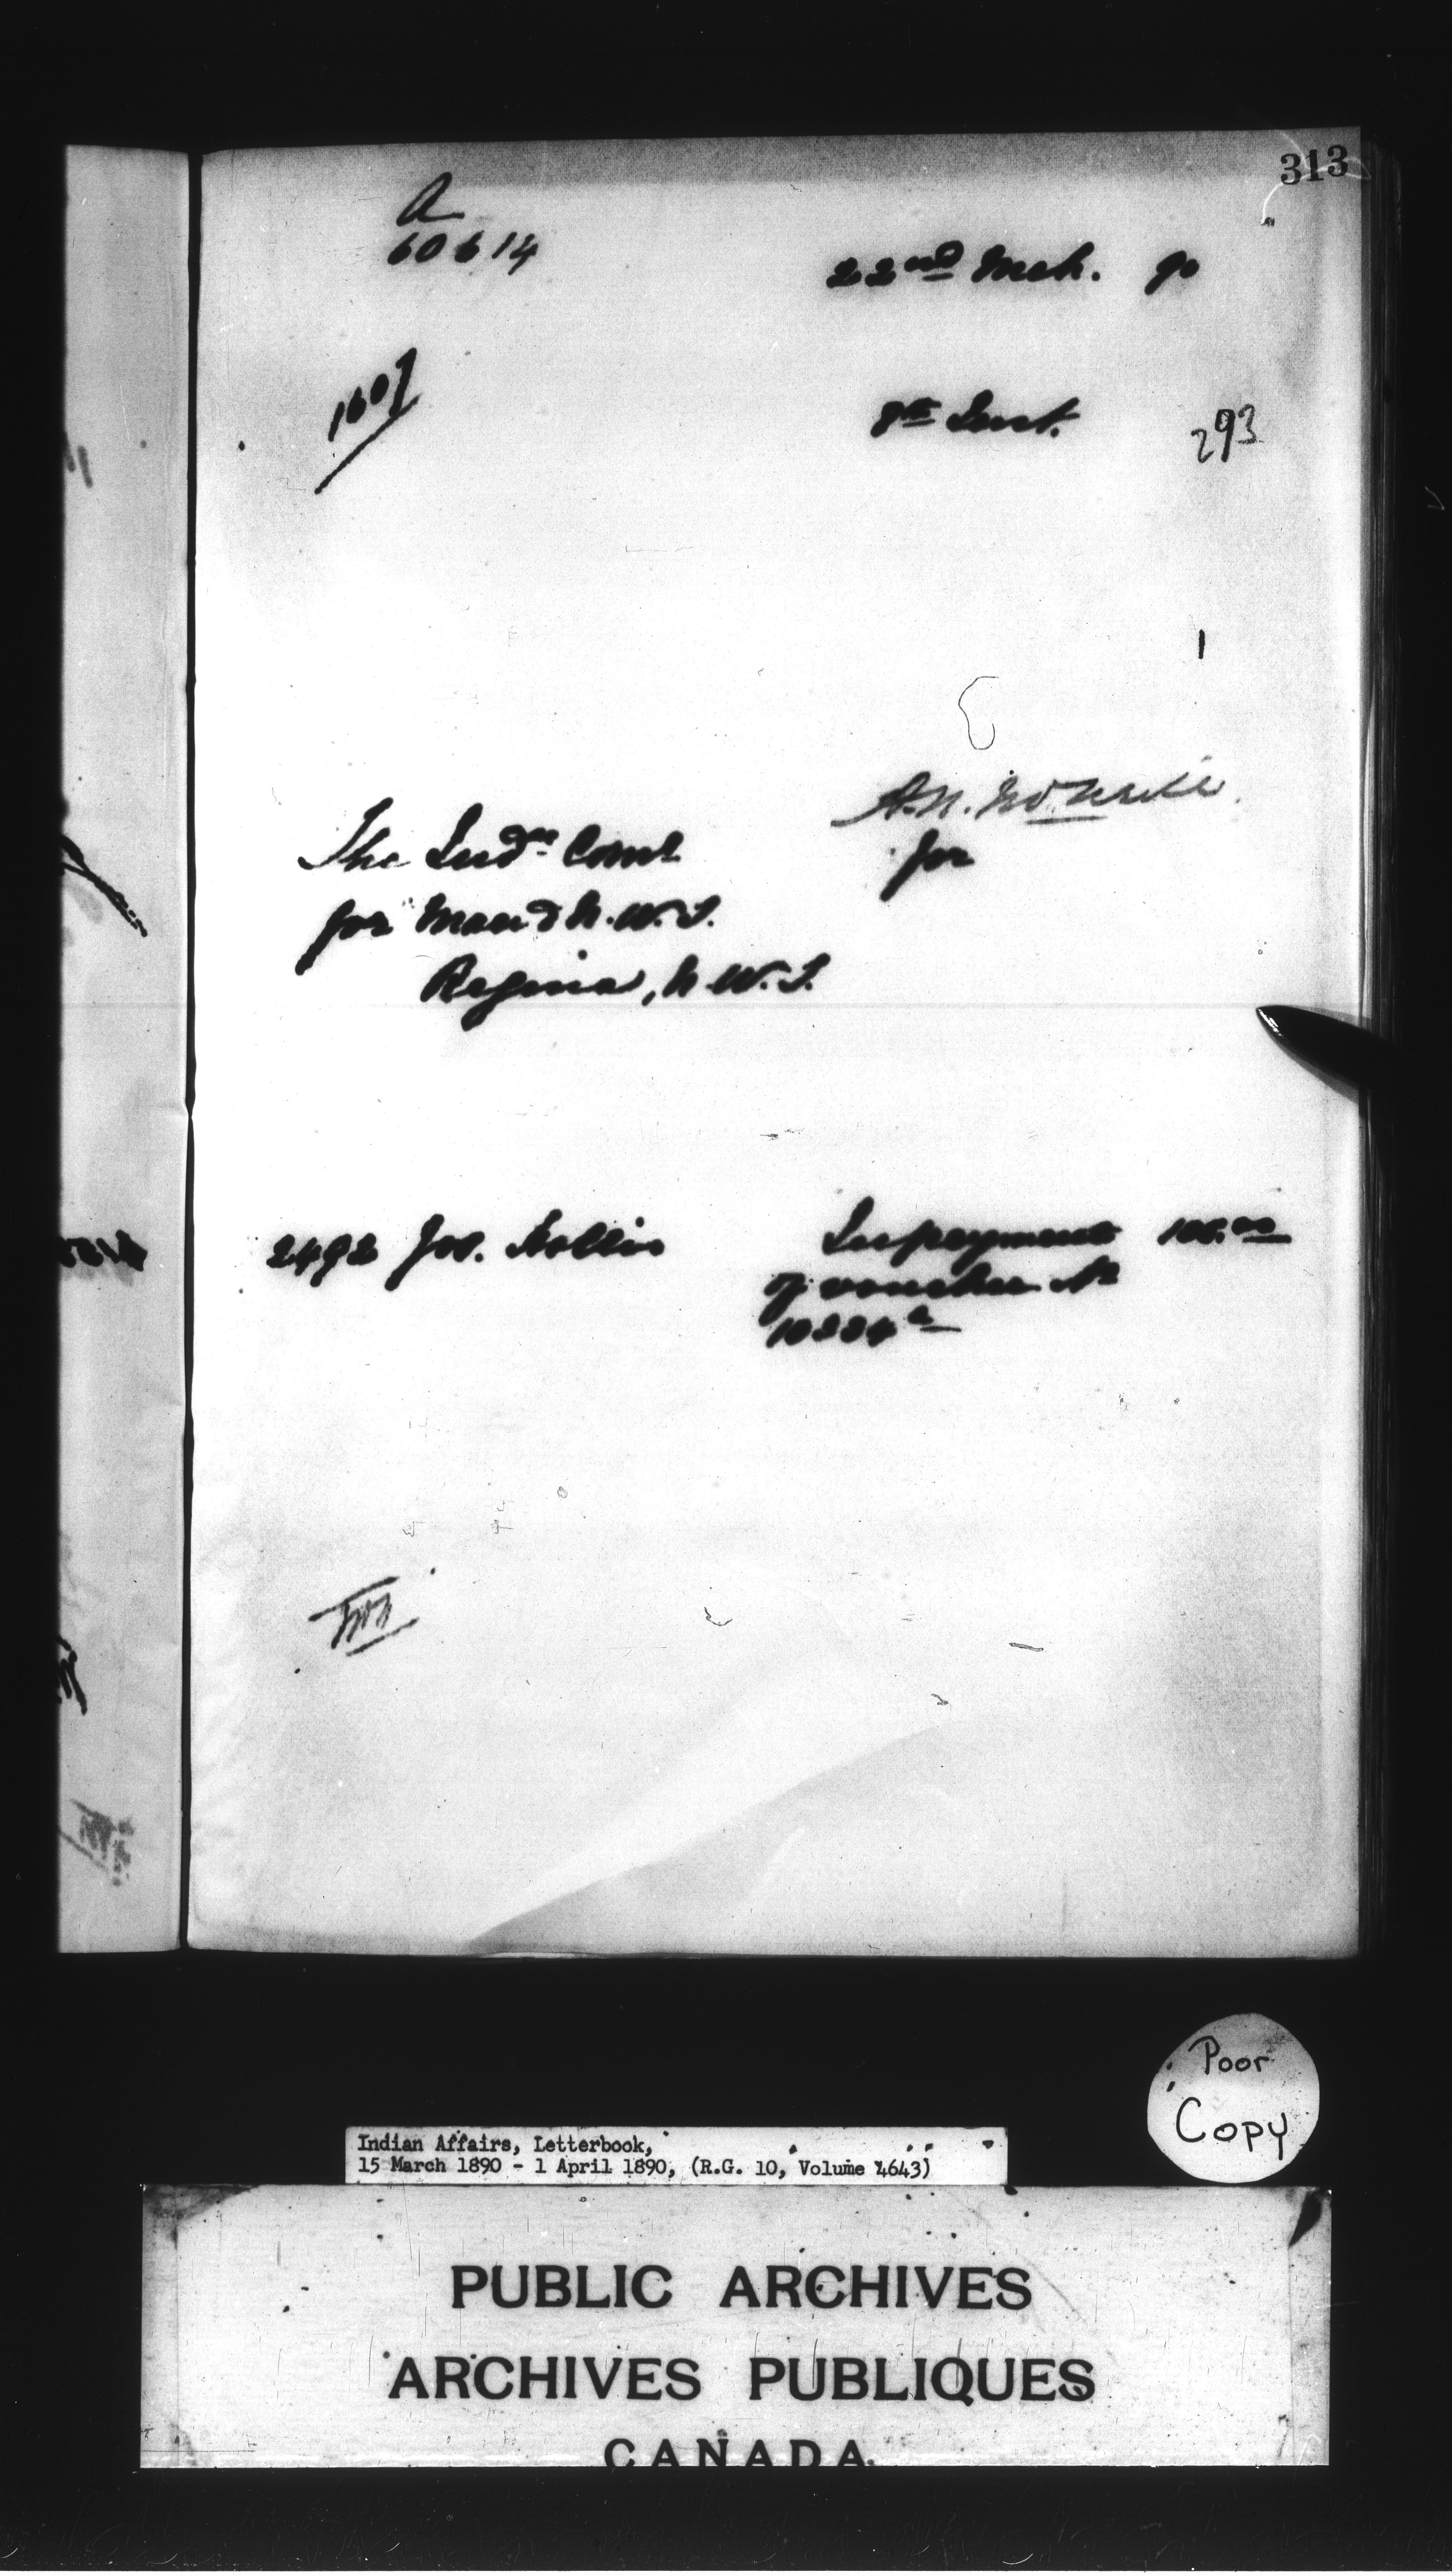 313
A
60614
22nd Mch. 90
1607
8th Inst.
293
for
The Indn Comr
for Man & N.W.T.
Regina, N.W.T.
2492 Jos. Hollis In payment 100.00
of voucher No
10334
Poor
Copy
Indian Affairs, Letterbook,
15 March 1890 - 1 April 1890, (R.G. 10, Volume 4643)
PUBLIC ARCHIVES
ARCHIVES PUBLIQUES
CANADA